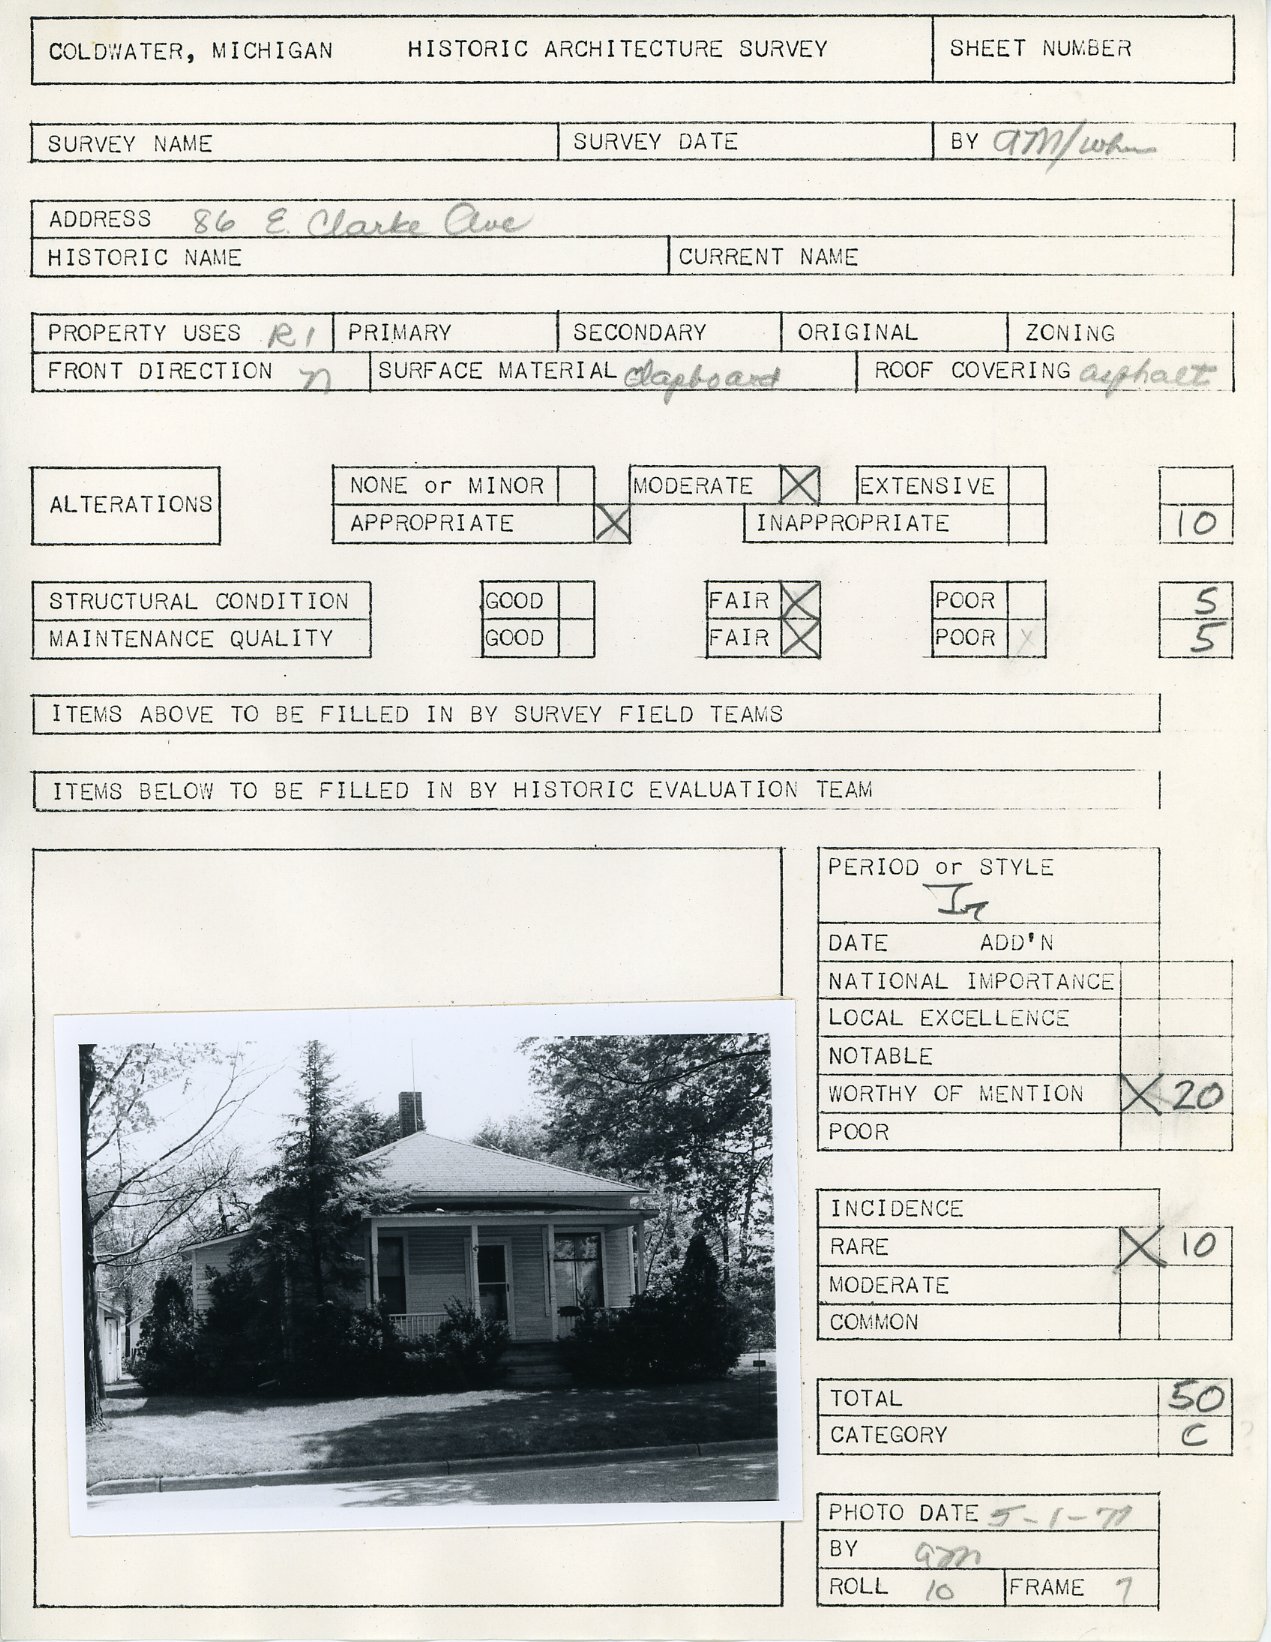 COLDWATER, MICHIGAN HISTORIC ARCHITECTURE SURVEY SHEET NUMBER
SURVEY NAME SURVEY DATE BY
ADDRESS 86 E. Clarke Ave
HISTORIC NAME CURRENT NAME
PROPERTY USES R1 PRIMARY SECONDARY ORIGINAL ZONING
FRONT DIRECTION n SURFACE MATERIAL clapboard ROOF COVERING asphalt
ALTERATIONS
NONE or MINOR MODERATE X EXTENSIVE
APPROPRIATE X INAPPROPRIATE 10
STRUCTURAL CONDITION GOOD FAIR X POOR 5
MAINTENANCE QUALITY GOOD FAIR X POOR X 5
ITEMS ABOVE TO BE FILLED IN BY SURVEY FIELD TEAMS
ITEMS BELOW TO BE FILLED IN BY HISTORIC EVALUATION TEAM
PERIOD or STYLE
DATE ADD'N
NATIONAL IMPORTANCE
LOCAL EXCELLENCE
NOTABLE
WORTHY OF MENTION X 20
POOR
INCIDENCE
RARE X 10
MODERATE
COMMON
TOTAL 50
CATEGORY C
PHOTO DATE 5-1-77
BY am
ROLL 10 FRAME 7